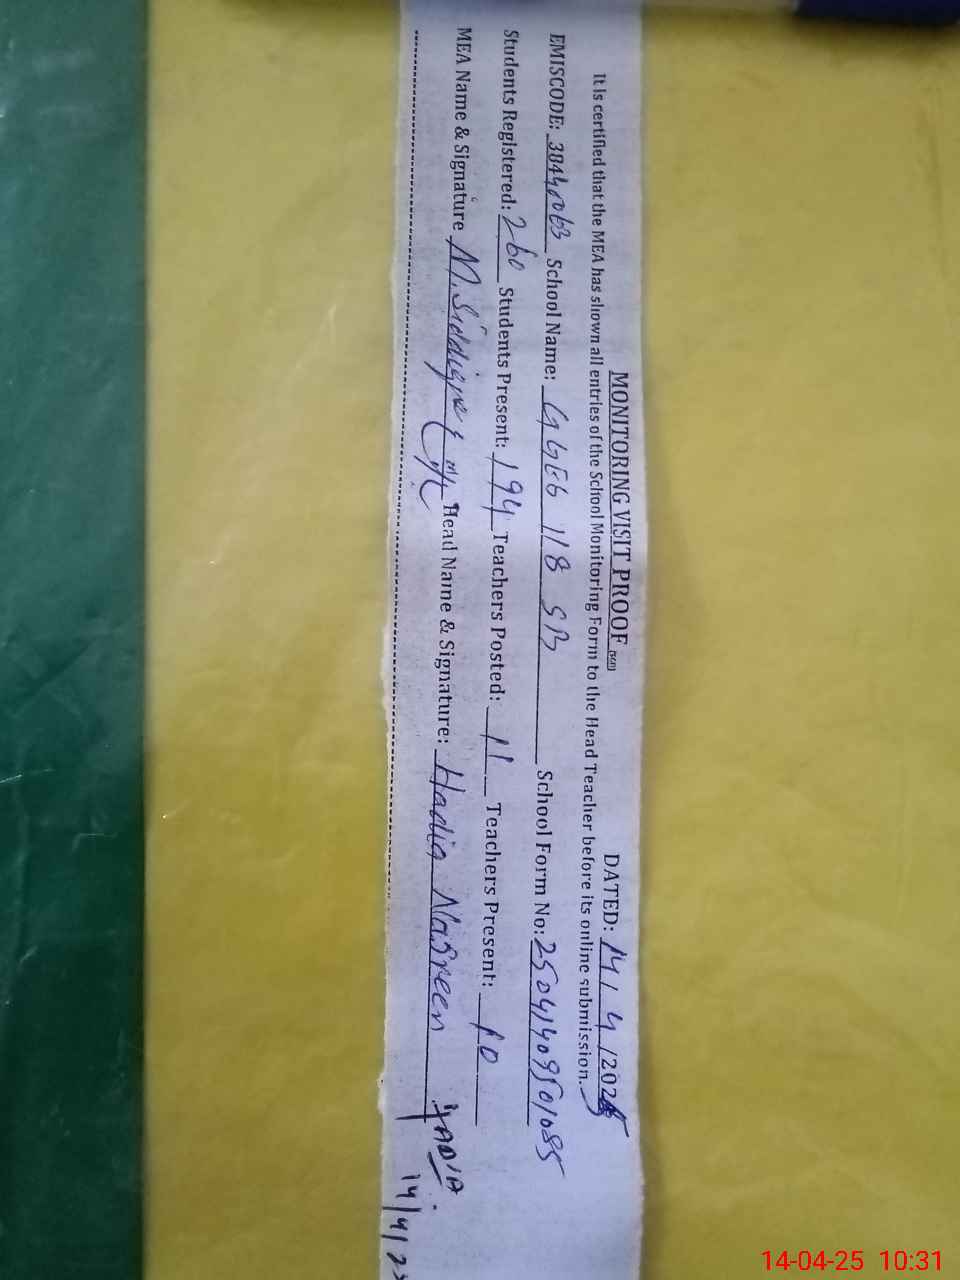 MONITORING VISIT PROOF DATED: 14/4/2025
It is certified that the MEA has shown all entries of the School Monitoring Form to the Head Teacher before its online submission.
EMISCODE: 38440063 School Name: GGES 118 SB School Form No: 25041409501085
Students Registered: 260 Students Present: 194 Teachers Posted: 11 Teachers Present: 10
MEA Name & Signature M. Siddique Head Name & Signature: Hadia Nasreen HADIA
14/4/25
14-04-25 10:31